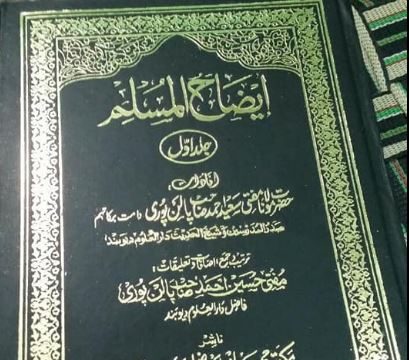 ایضاح المسلم
جلد اوّل
افادات
حضرت مولانا مفتی سعید احمد صاحب پالن پوری دامت برکاتہم
صدر المدرسین و شیخ الحدیث دار العلوم دیوبند
ترتیب، جمع، اضافات و تعلیقات:
مفتی حسین احمد صاحب پالن پوری
فاضل دار العلوم دیوبند
ناشر
مکتبہ